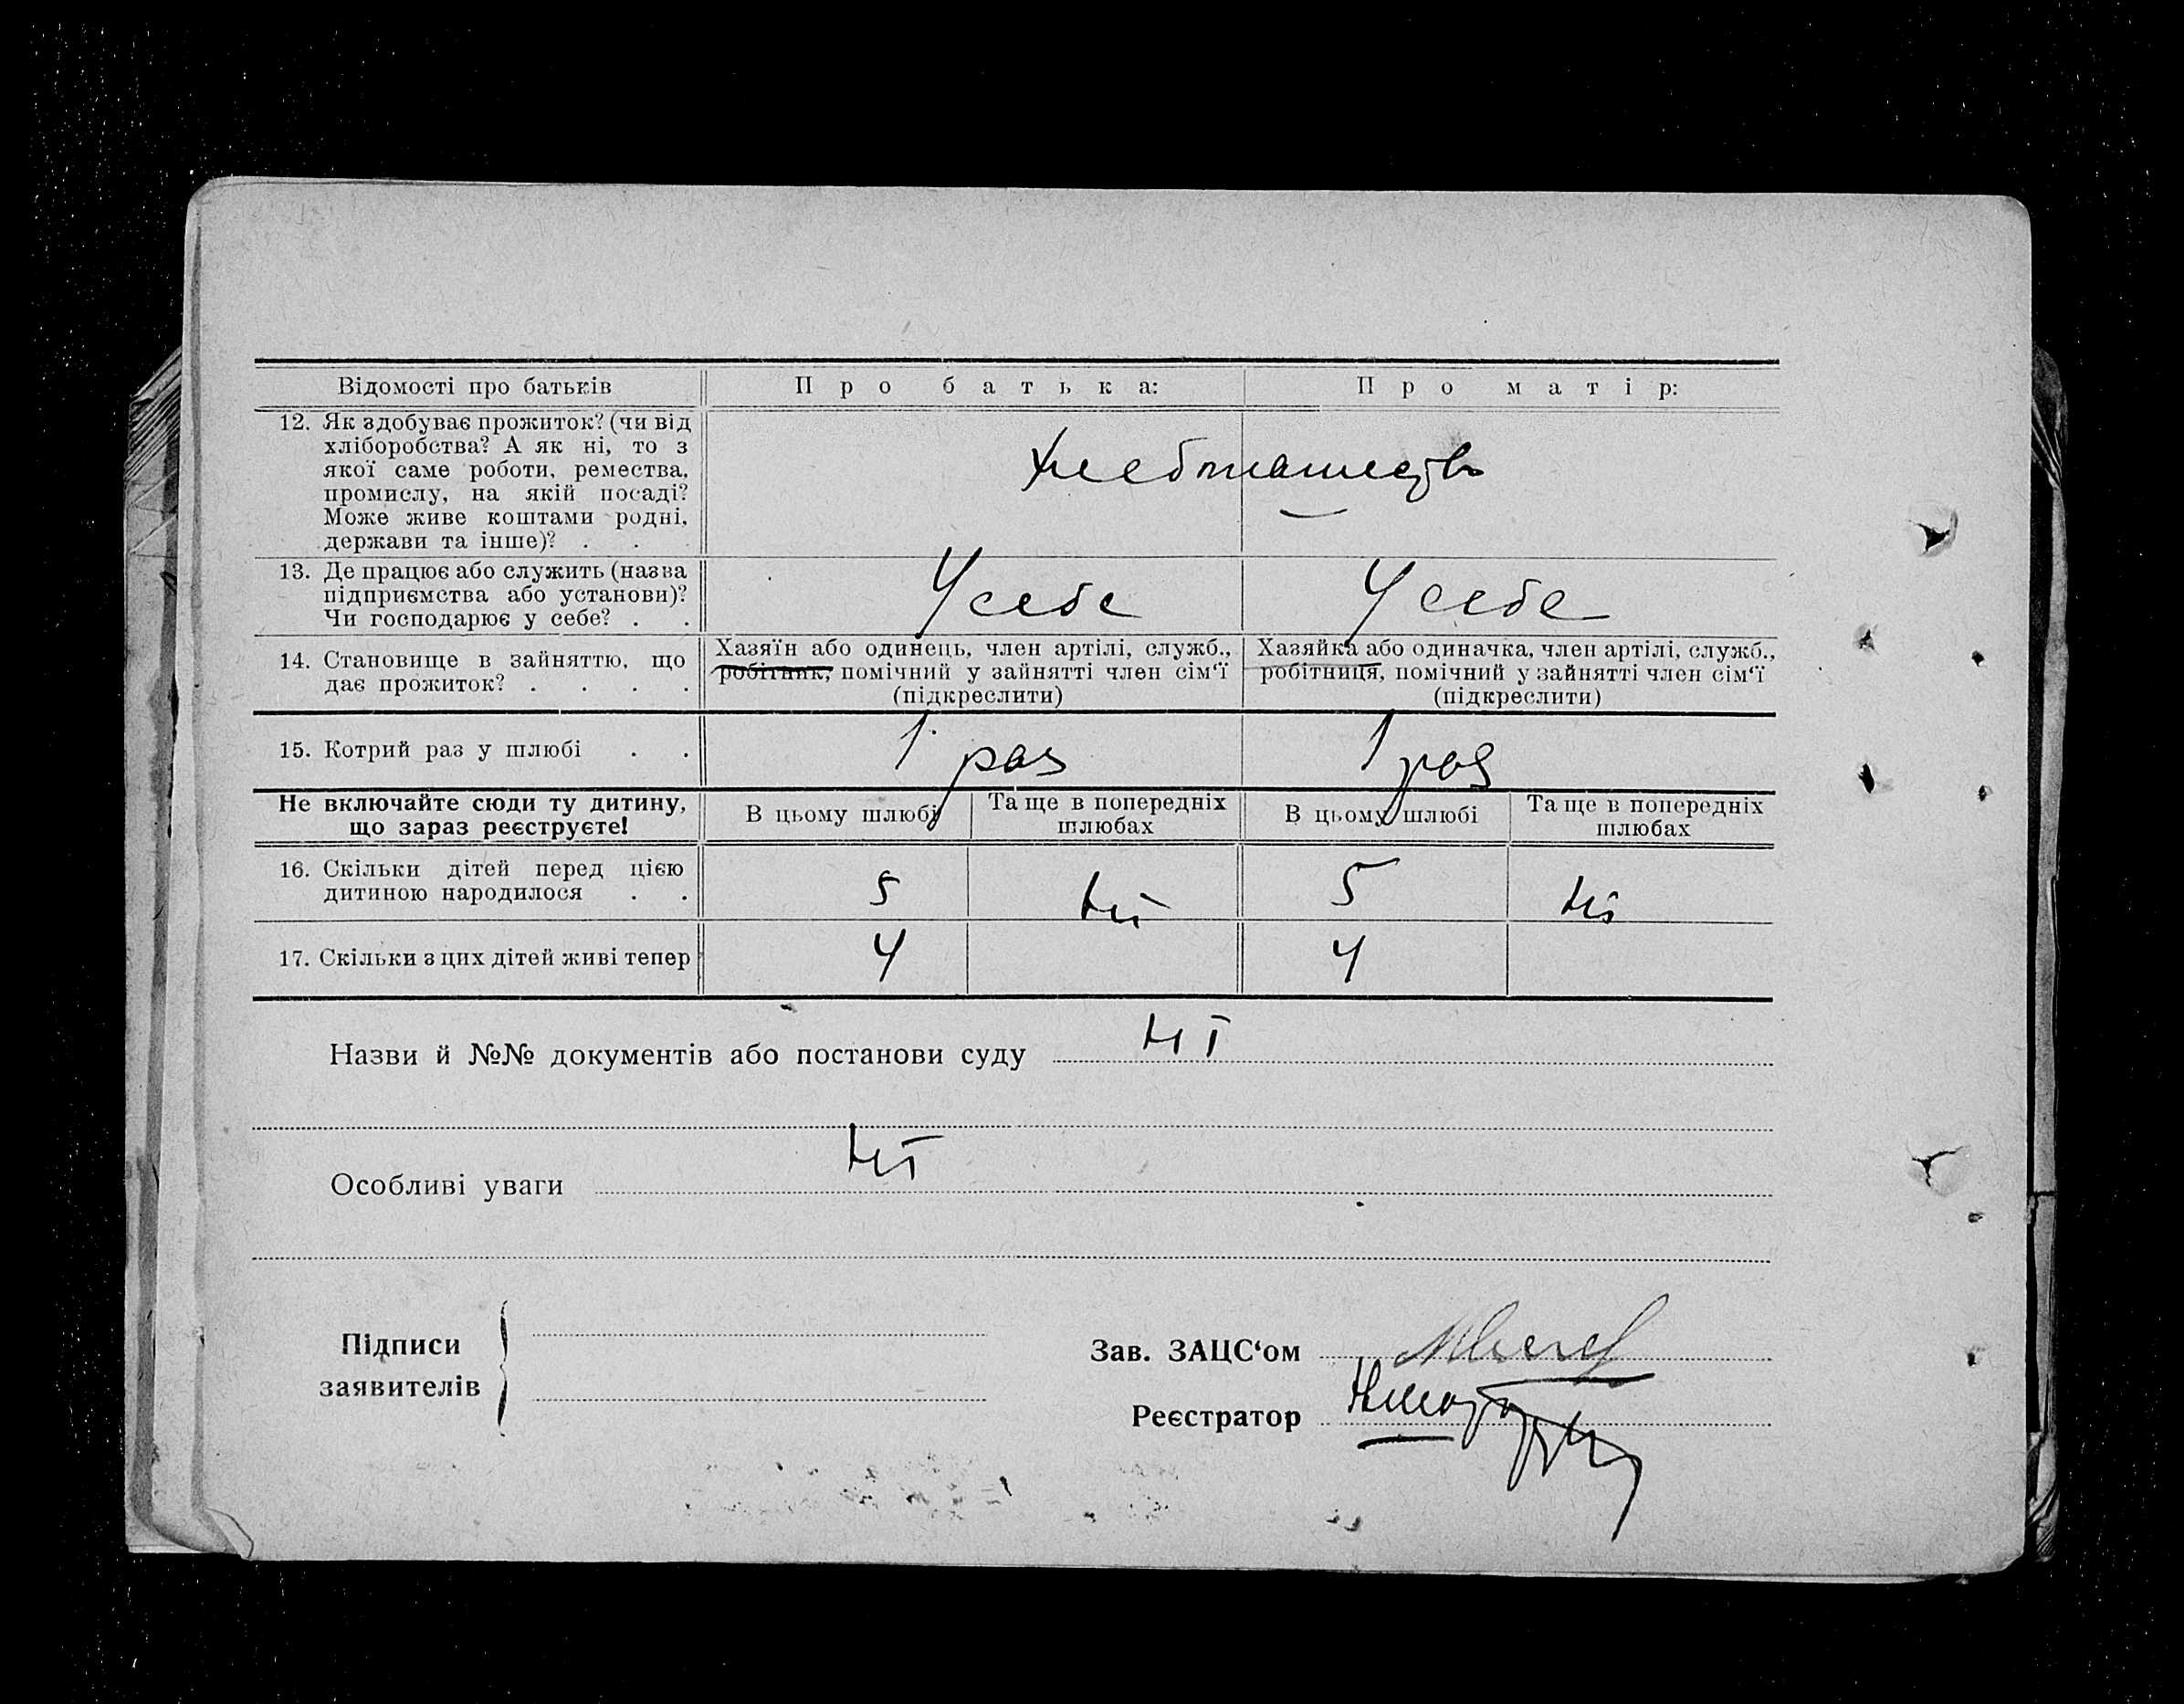 Відомості про батьків Про батька: Про матір:
12. Як здобуває прожиток? (чи від
хліборобства? А як ні, то з
якої саме роботи, ремества,
промислу, на якій посаді?
Може живе коштами родні,
держави та інше)? . . .
13. Де працює або служить (назва
підприємства або установи)?
Чи господарює у себе? . .
У себе У себе
14. Становище в зайняттю, що
дає прожиток? . . . .
Хазяїн або одинець, член артілі, служб.,
робітник, помічний у зайнятті член сім‘ї
(підкреслити)
Хазяйка або одиначка, член артілі, служб.,
робітниця, помічний у зайнятті член сім‘ї
(підкреслити)
15. Котрий раз у шлюбі . . 1 раз 1 раз
Не включайте сюди ту дитину,
що зараз реєструєте!
В цьому шлюбі
Та ще в попередніх
шлюбах
В цьому шлюбі
Та ще в попередніх
шлюбах
16. Скільки дітей перед цією
дитиною народилося . .
5 Ні 5 Ні
17. Скільки з цих дітей живі тепер 4 4
Назви й №№ документів або постанови суду Ні
Особливі уваги Ні
Підписи
заявителів
Зав. ЗАЦС‘ом
Реєстратор